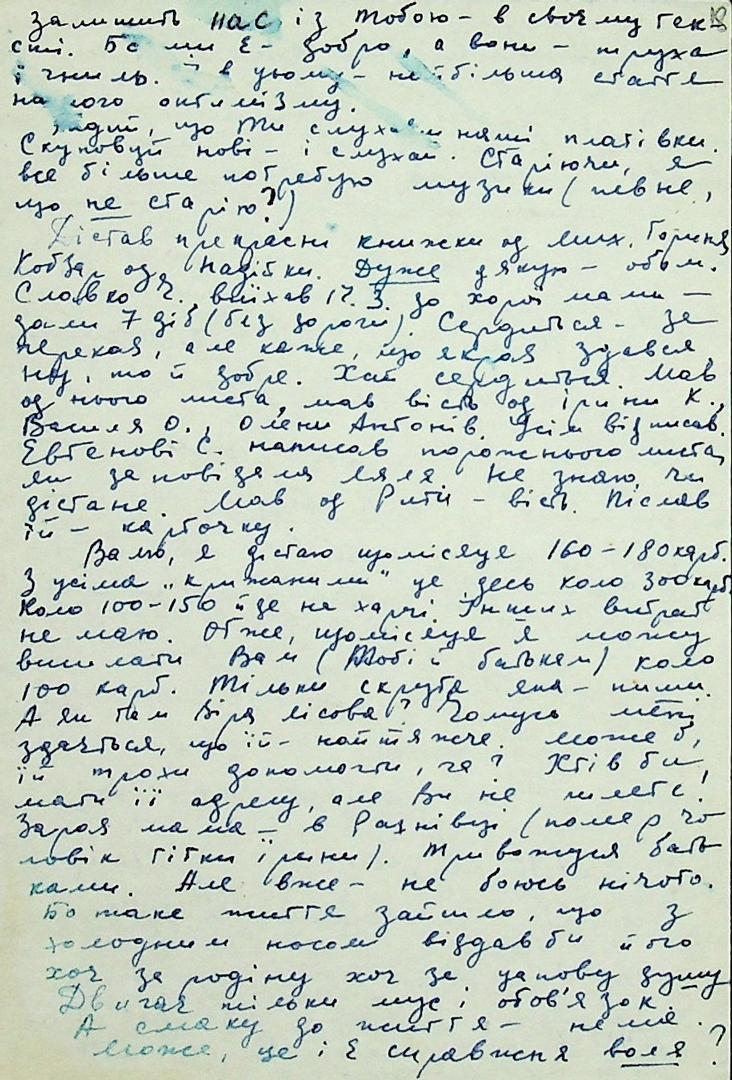 залишить нас із Тобою – в своєму гек-
сті. Бо ми є – добро, а вони – труха
і гниль. І в цьому – найбільша стаття
нашого оптимізму.
що Ти слухаєш наші платівки.
Скуповуй нові – і слухай. Старіючи, я
все більше потребую музики (певне,
що не старію?)
Дістав прекрасні книжки од Мих. Гориня
Кобзар од Надійки. Дуже дякую – обом.
Славко Ч. виїхав 17.3. до хорої мами –
дали 7 діб (без дороги). Сердиться – за
переказ, але каже, що якраз здався.
Ну, то й добре. Хай сердиться. Мав
од нього листа, мав вість од Ірини К.,
Василя О., Олени Антонів. Усім відписав.
Евгенові С. написав порожнього листа,
як заповідала Ляля. Не знаю, чи
дістане. Мав од Рити – вість. Післав
їй – карточку.
Валю, я дістаю щомісяця 160–180 карб.
З усіма „крижаними" це десь коло 300 карб.
Коло 100–150 йде на харчі. Інших витрат
не маю. Отже, щомісяця я можу
висилати Вам (Тобі й батькам) коло
100 карб. Тільки скрута яка – пиши.
А як там Віра Лісова? Чомусь мені
здається, що їй – найтяжче. Може б,
їй трохи допомогти, га? Хтів би
мати її адресу, але Ви не шлете.
Зараз мама – в Рахнівці (помер чо-
ловік тітки Ірини). Тривожуся бать-
ками. Але вже – не боюсь нічого.
Бо таке життя зайшло, що з
холодним носом віддав би його
хоч за родину хоч за цапову душу
Двигає тільки мус і обов'язок.
А смаку до життя – нема.
Може, це і є справжня воля?